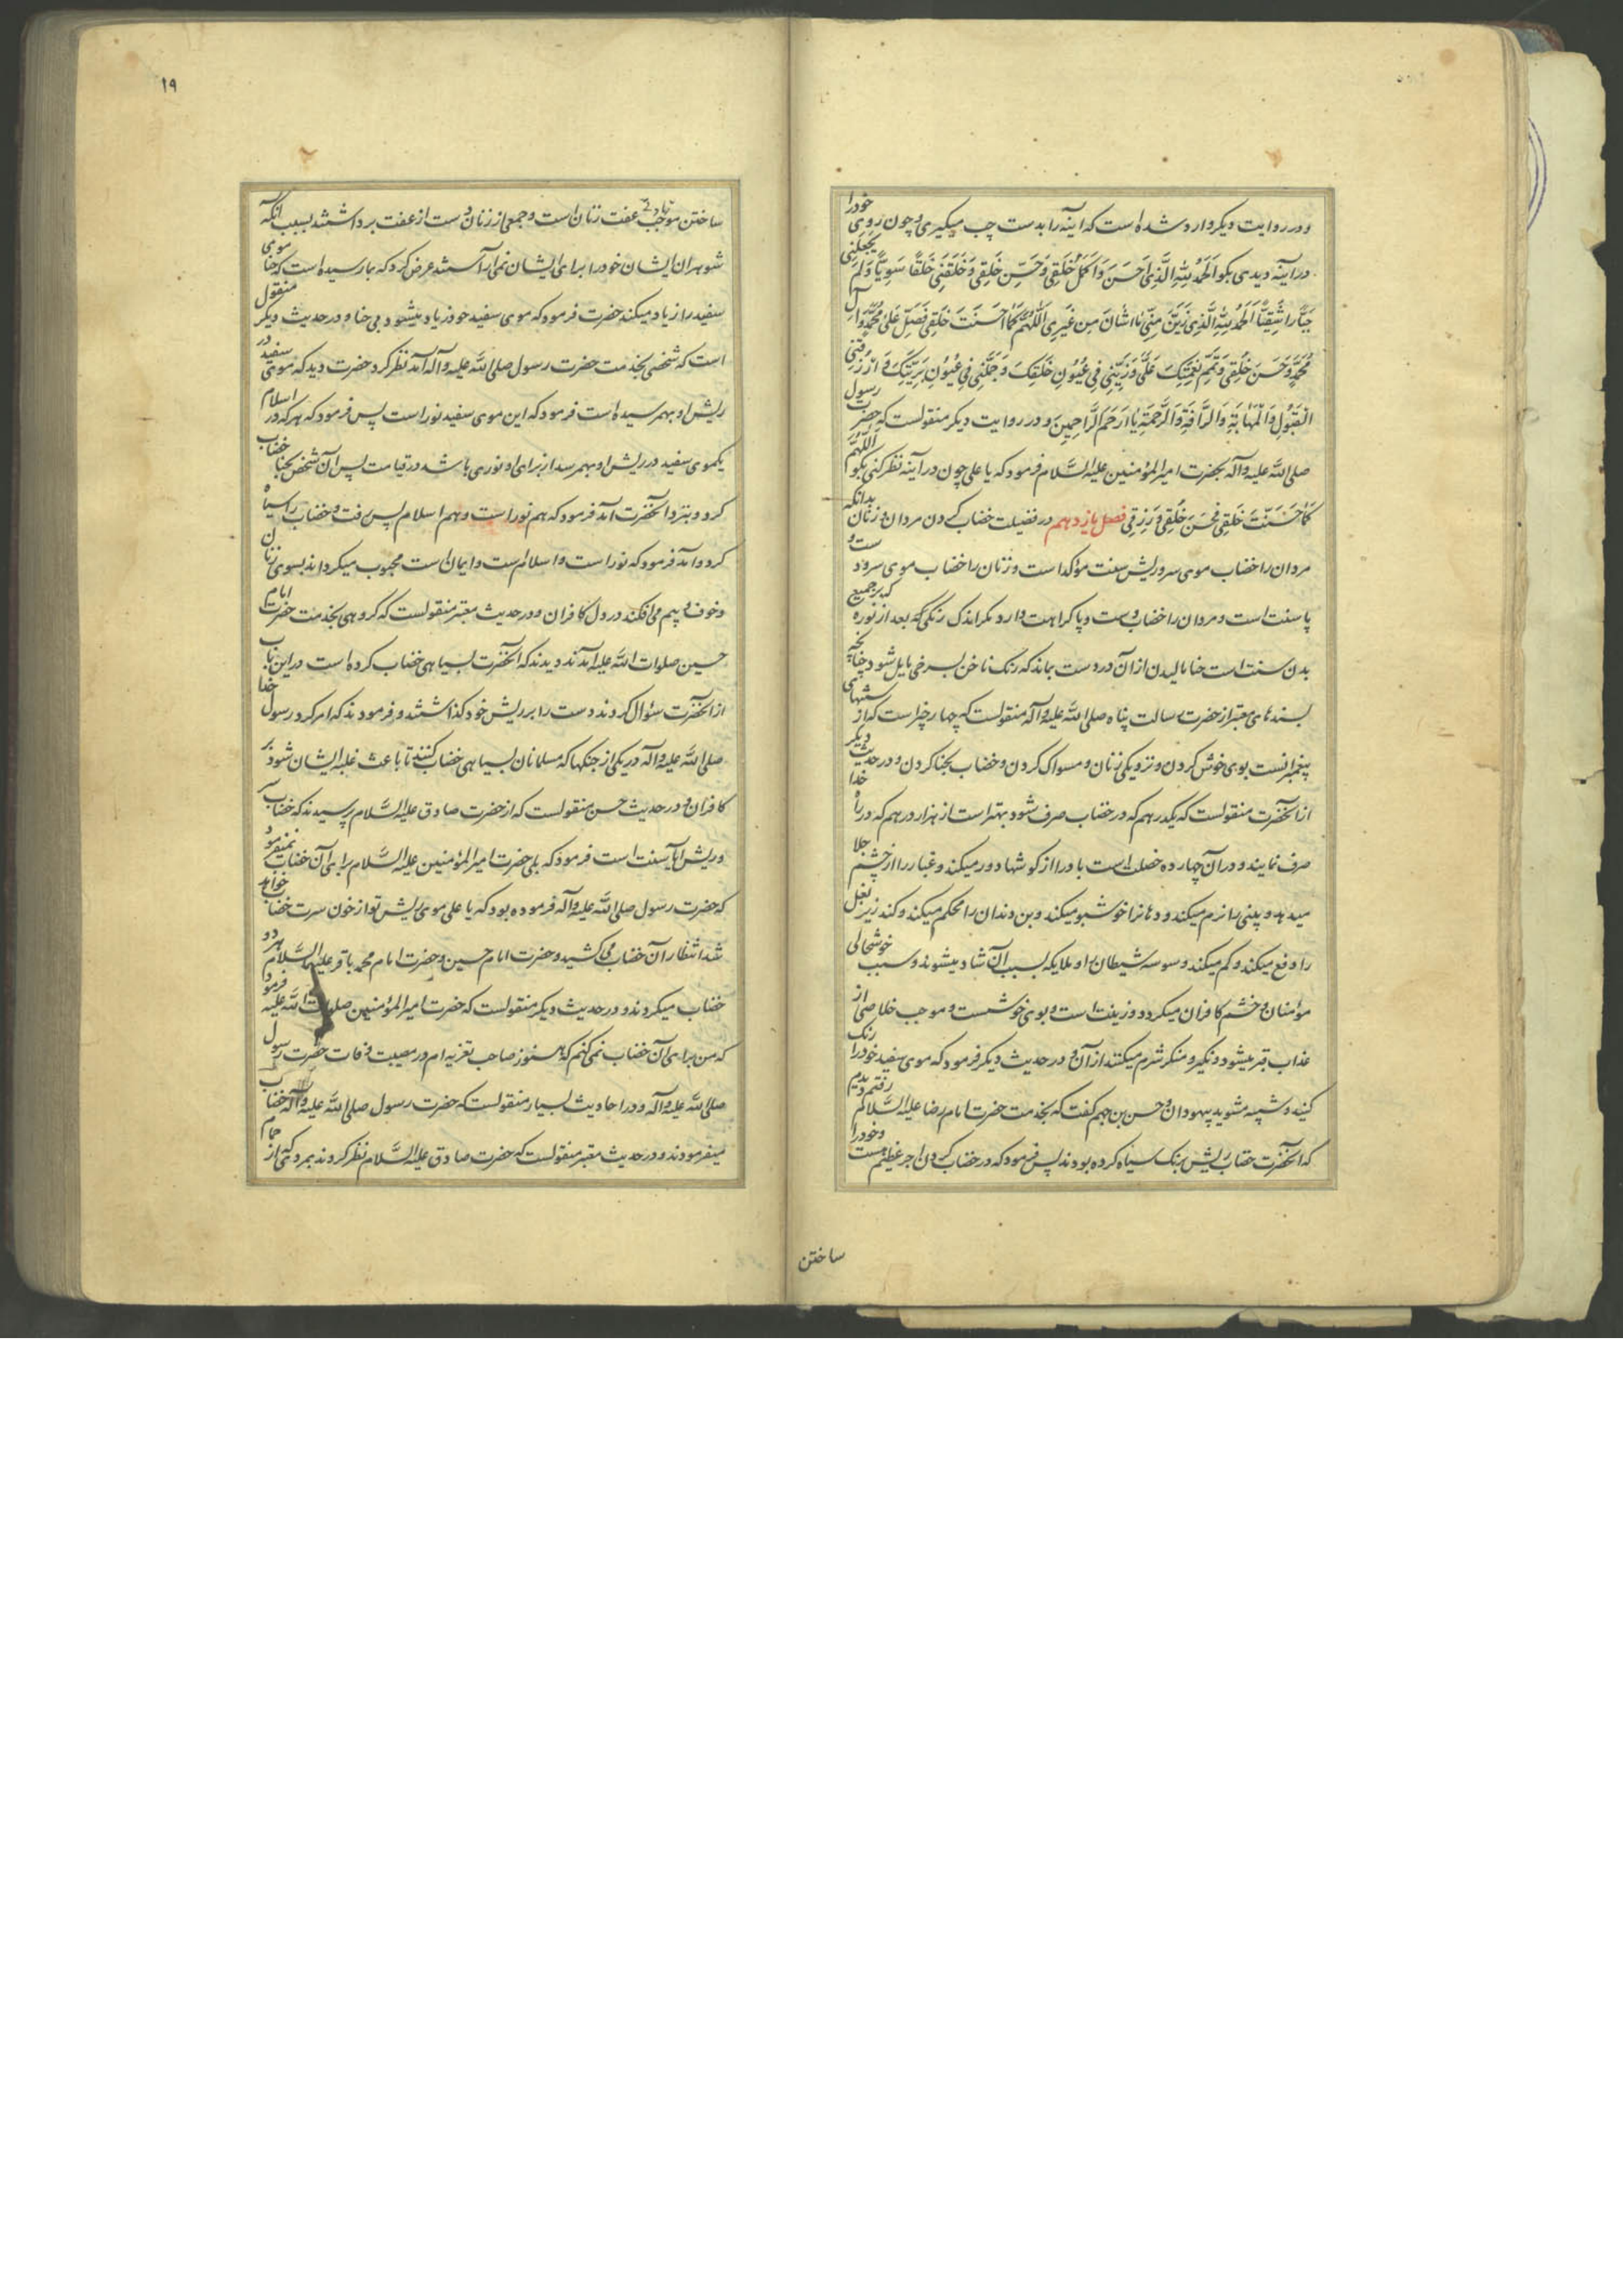 و در روایت دیگر وارد شده است که اینه را بدست چب میکیری و چون روی خودرا
در اینه دیدی بکو اَلحَمدُ لِلّهِ الَّذِی اَحسَنَ وَاَکمَلَ خَلقِی وَحَسَّنَ خَلقِی وَخَلَقَنِی خَلقًا سَوِیًّا وَلَم یَجعَلنِی
جَبَّارًا شَقِیًّا اَلحَمدُ لِلّهِ الَّذِی زَیَّنَ مِنِّی مٰا شٰانَ مِن غَیرِی اَللّهُمَّ کَمٰا اَحسَنتَ خَلقِی فَصَلِّ عَلیٰ مُحَمَّدٍ وَاٰلِ
مُحَمَّدٍ وَحَسِّن خُلقِی وَتَمِّم نِعمَتِکَ عَلَیَّ وَزَیِّنِی فِی عُیُونِ خَلقِکَ وَجَمِّلنِی فِی عُیُونِ بَرِیَّتِکَ وَارزُقنِی
القَبُولَ وَالمَهٰابَةَ وَالرَّافَةَ وَالرَّحمَةَ یٰا اَرحَمَ الرَّاحِمِینَ و در روایت دیکر منقولست که حضرت رسول
صلی اللّه علیه وآله بحضرت امیرالمؤمنین علیه السَّلام فرمود که یا علی چون در آینه نظر کنی بکو اَللّهُمَّ
کَمٰا حَسَّنتَ خَلقِی فَحَسِّن خُلقِی وَرِزقِی فصل یازدهم در فضیلت خضاب کردن مردان و زنان بدانکه
مردان را خضاب موی سر و ریش سنت مؤکد است و زنان را خضاب موی سر و دست و
پا سنت است و مردان را خضاب دست و پا کراهت دارد مکر اندک رنکی که بعد از نوره که بر جمیع
بدن سنت است حنا مالیدن از آن در دست بماند که رنک ناخن بسرخی مایل شود چنانچه
بسندهای معتبر از حضرت رسالت پناه صلی اللّه علیه وآله منقولست که چهار چیز است که از سنتهای
پیغمبرانست بوی خوش کردن و نزدیکی زنان و مسواک کردن و خضاب بحنا کردن و در حدیث دیکر
از آنحضرت منقولست که یکدرهم که در خضاب صرف شود بهتر است از هزار درهم که در راه خدا
صرف نمایند و در آن چهارده خصلت است باد را از کوشها دور میکند و غبار را از چشم جلا
میدهد و بینی را نرم میکند و دهانرا خوشبو میکند و بن دندان را محکم میکند و کند زیر بغل
را دفع میکند و کم میکند وسوسه شیطان را و ملایکه بسبب آن شاد میشوند و سبب خوشحالی
مؤمنان و خشم کافران میکردد و زینت است و بوی خوشست و موجب خلاصی از
عذاب قبر میشود و نکیر و منکر شرم میکنند از آن و در حدیث دیکر فرمود که موی سفید خودرا رنک
کنید و شبیه مشوید بیهودان و حسن بن جهم کفت که بخدمت حضرت امام رضا علیه السَّلام رفتم دیدم
که آنحضرت خضاب ریش برنک سیاه کرده بودند پس فرمود که در خضاب کردن اجر عظیم هست و خودرا
ساختن
۱۹
ساختن موجب زیادتی عفت زنان است و جمعی از زنان دست از عفت برداشتند بسبب انکه
شوهران ایشان خودرا برای ایشان نمی آراستند عرض کرد که بما رسیده است که حنا موی
سفید را زیاد میکند حضرت فرمود که موی سفید خود زیاد میشود بی حنا و در حدیث دیکر منقول
است که شخصی بخدمت حضرت رسول صلی اللّه علیه وآله آمد نظر کرد حضرت دید که موی سفید در
ریش او بهم رسیده است فرمود که این موی سفید نور است پس فرمود که هر که در اسلام
یکموی سفید در ریش او بهم رسد از برای او نوری باشد در قیامت پس آن شخص بحنا خضاب
کرد و بنزد آنحضرت آمد فرمود که هم نور است و هم اسلام پس رفت و خضاب سیاه
کرد و آمد فرمود که نور است و اسلامست و ایمان است و محبوب میکرداند بسوی زنان
و خوف و بیم می افکند در دل کافران و در حدیث معتبر منقولست که کروهی بخدمت حضرت امام
حسین صلوات اللّه علیه آمدند دیدند که آنحضرت بسیاهی خضاب کرده است در این باب
از آنحضرت سؤال کردند دست را بر ریش خود کذاشتند و فرمودند که امر کرد رسول خدا
صلی اللّه علیه وآله در یکی از جنکها که مسلمانان بسیاهی خضاب کنند تا باعث غلبه ایشان شود بر
کافران و در حدیث حسن منقولست که از حضرت صادق علیه السَّلام پرسیدند که خضاب سر
و ریش آیا سنت است فرمود که بلی حضرت امیرالمؤمنین علیه السَّلام برای آن خضاب نمیفرمود
که حضرت رسول صلی اللّه علیه وآله فرموده بود که یا علی موی ریش تو از خون سرت خضاب خواهد
شد انتظار آن خضاب می کشید و حضرت امام حسین و حضرت امام محمد باقر علیهما السَّلام هر دو
خضاب میکردند و در حدیث دیکر منقولست که حضرت امیرالمؤمنین صلوات اللّه علیه فرمود
که من برای آن خضاب نمی کنم که هنوز صاحب تعزیه ام در مصیبت وفات حضرت رسول
صلی اللّه علیه وآله و در احادیث بسیار منقولست که حضرت رسول صلی اللّه علیه وآله خضاب
میفرمودند و در حدیث معتبر منقولست که حضرت صادق علیه السَّلام نظر کردند بمردی که از حمام